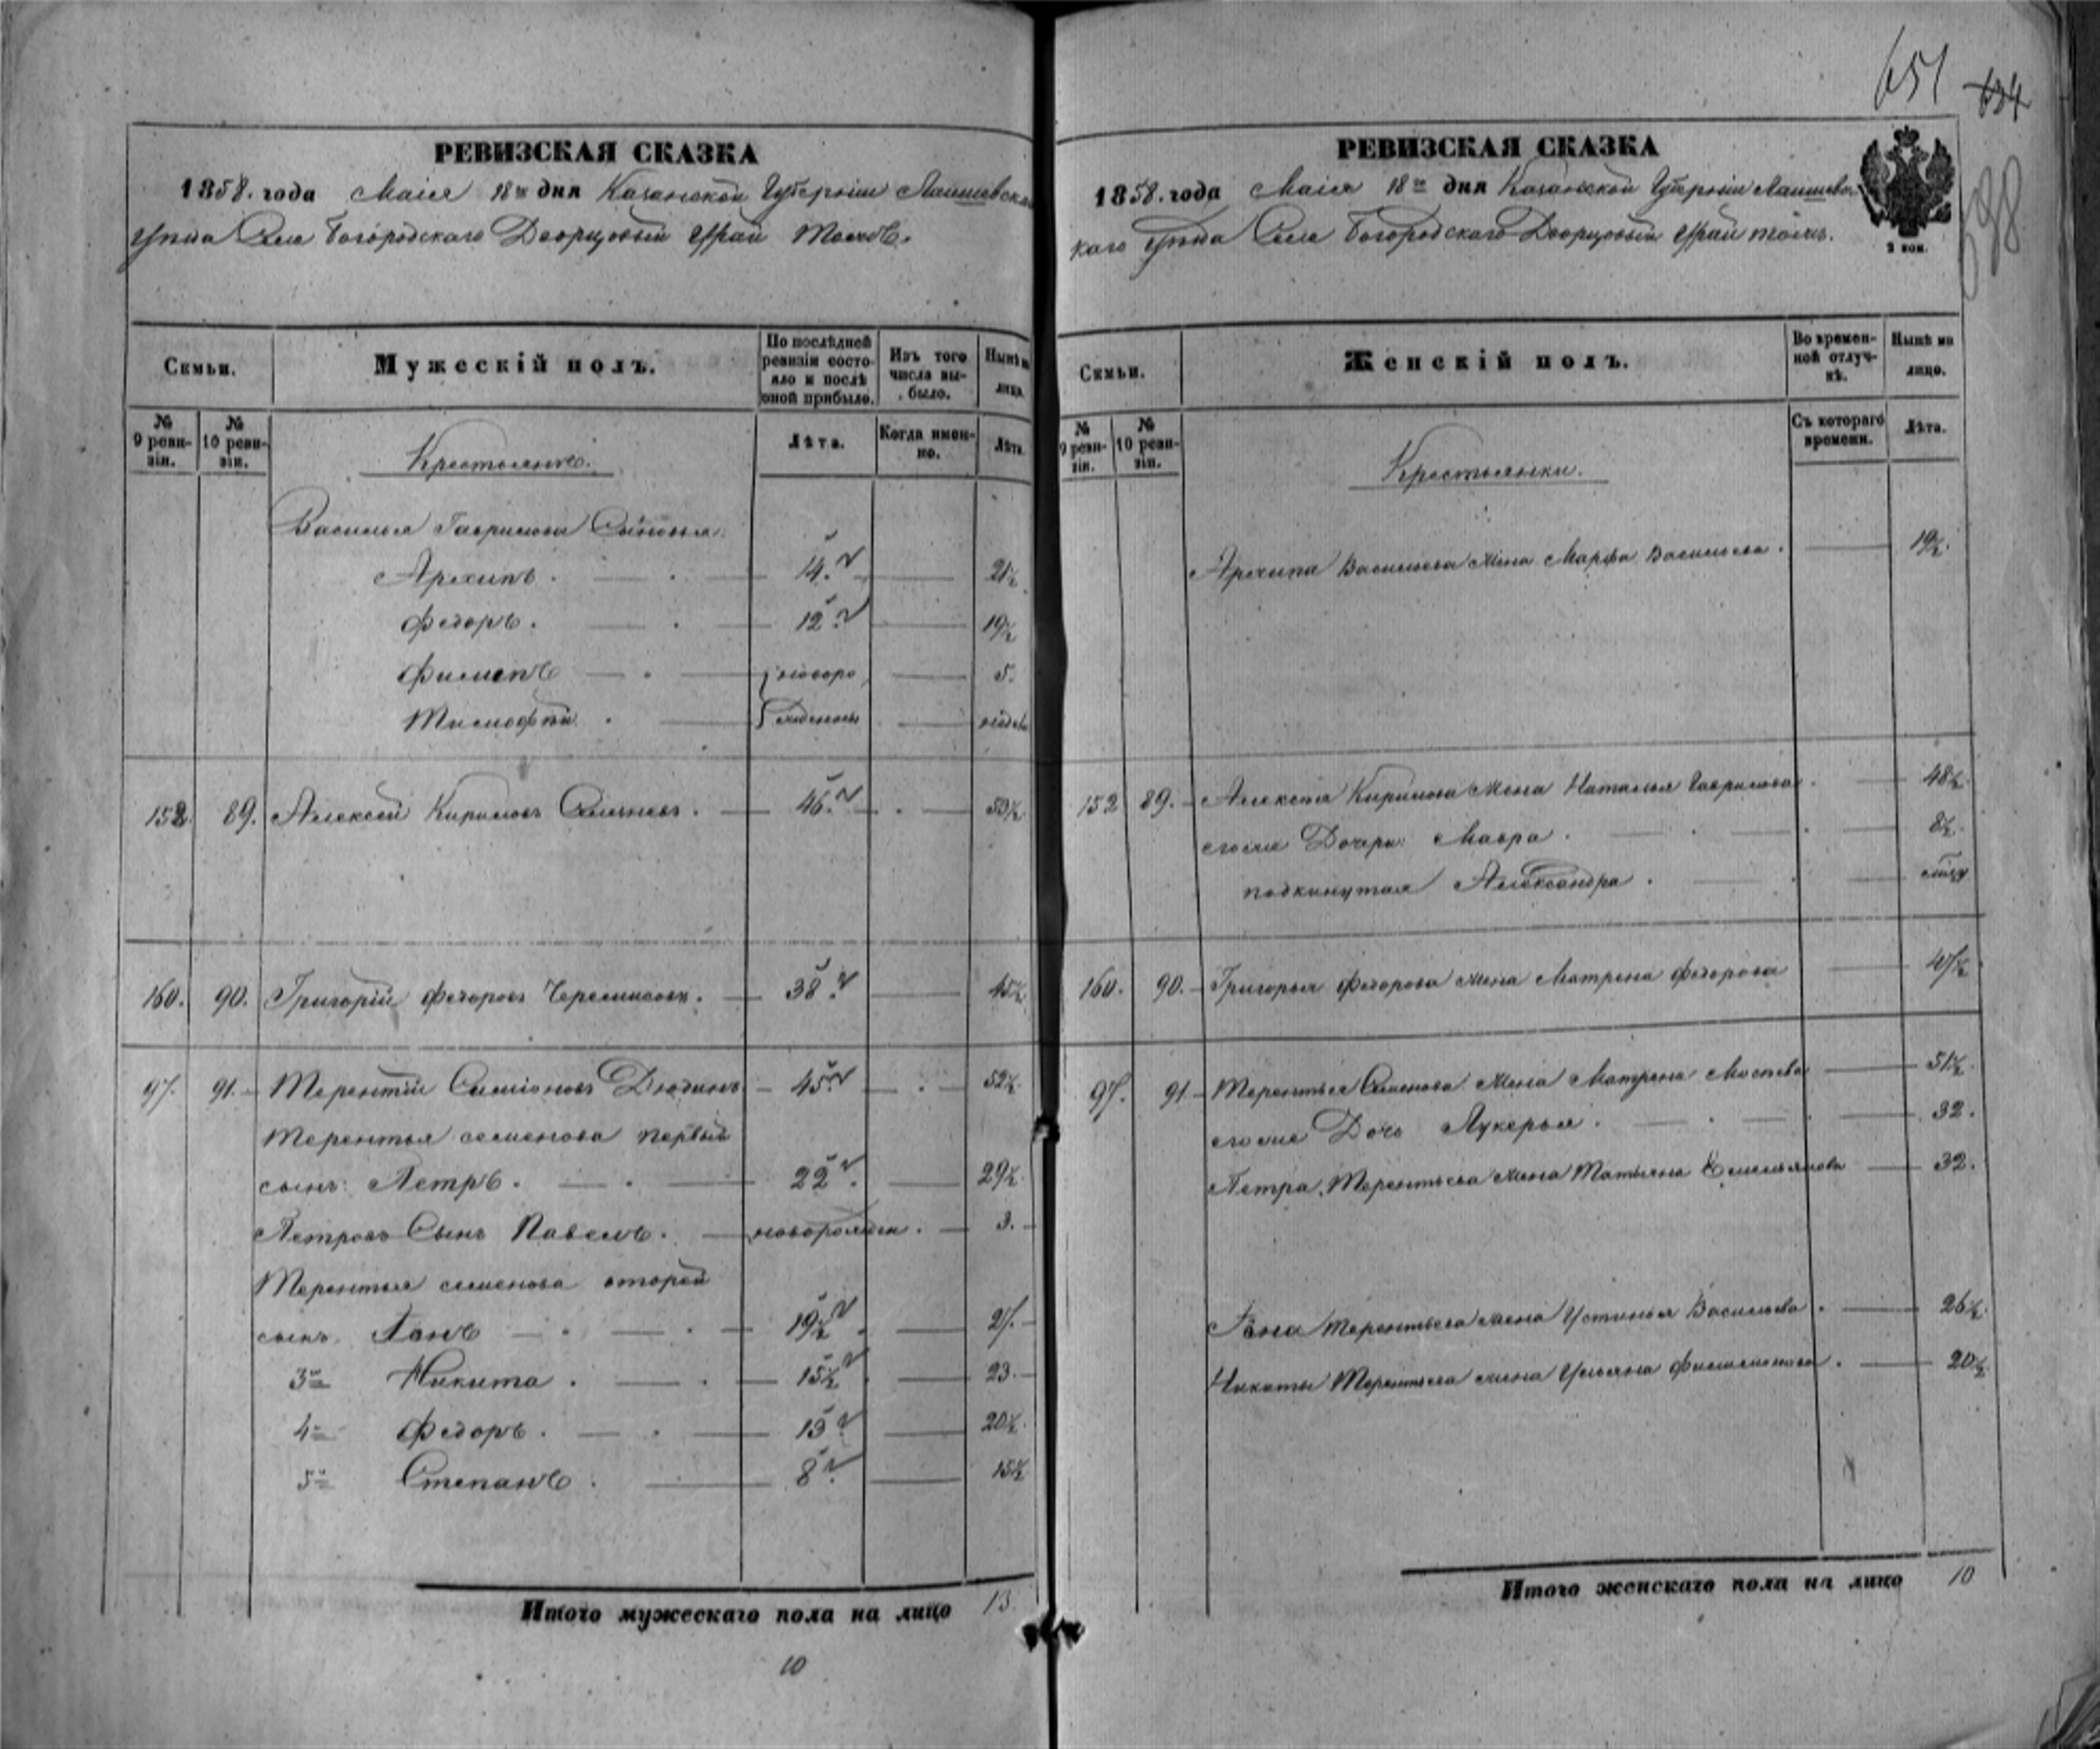 651 634
698
РЕВИЗСКАЯ СКАЗКА
1858. года Маія 18го дня Казанской Губерніи Лаишевска
уѣзда Села Богородскаго Дворцовый Урай тожъ.
Семьи.
Мужескій полъ.
По послѣдней ревизіи состояло и послѣ оной прибыло.
Изъ того числа выбыло.
Нынѣ на лицо.
№ 9 ревизіи.
№ 10 ревизіи.
Крестьяне.
Лѣта.
Когда именно.
Лѣта
Василья Гаврилова Сыновья:
Архипъ. 14. 21½
Федоръ. 12. 19½
Филипъ новоро 5.
Тимофѣй жденны недел
152. 89. Алексѣй Кириловъ 46. 53½
160. 90. Григорій Федоровъ 38. 45½
97. 91. Терентій Симіоновъ Дюдинъ 45. 52½
Терентья семенова первый
сынъ Петръ. 22. 29½
Петровъ Сынъ Павелъ. новорожден. 3.
Терентья семенова второй
сынъ 19½ 27.
3й Никита. 15½ 23.
4й Федоръ. 13. 20½
5й Степанъ. 8. 15½
Итого мужескаго пола на лицо 13.
10
РЕВИЗСКАЯ СКАЗКА
1858. года Маія 18го дня Казанской Губерніи Лаишевс
каго уѣзда Села Богородскаго Дворцовый Урай тожъ.
2 коп.
Семьи.
Женскій полъ.
Во временной отлучкѣ.
Нынѣ на лицо.
№ 9 ревизіи.
№ 10 ревизіи.
Крестьянки.
Съ котораго времени.
Лѣта.
Архипа Васильева жена Марфа Васильева. 19½.
152 89. Алексѣя Кирилова жена Наталья Гаврилова. 48½
егоже Дочери: Мавра. 8½.
подкинутая Александра.
160. 90. Григорья Федорова жена Матрена Федорова 47½
97. 91 Терентья Семенова жена Матрена 51½.
егоже Дочь Лукерья. 32.
Петра Терентьева жена Татьяна Емельянова 32.
Терентьева жена Устинья Васильева. 26½.
Никиты Терентьева жена Ульяна Филимонова. 20½.
Итого женскаго пола на лицо 10